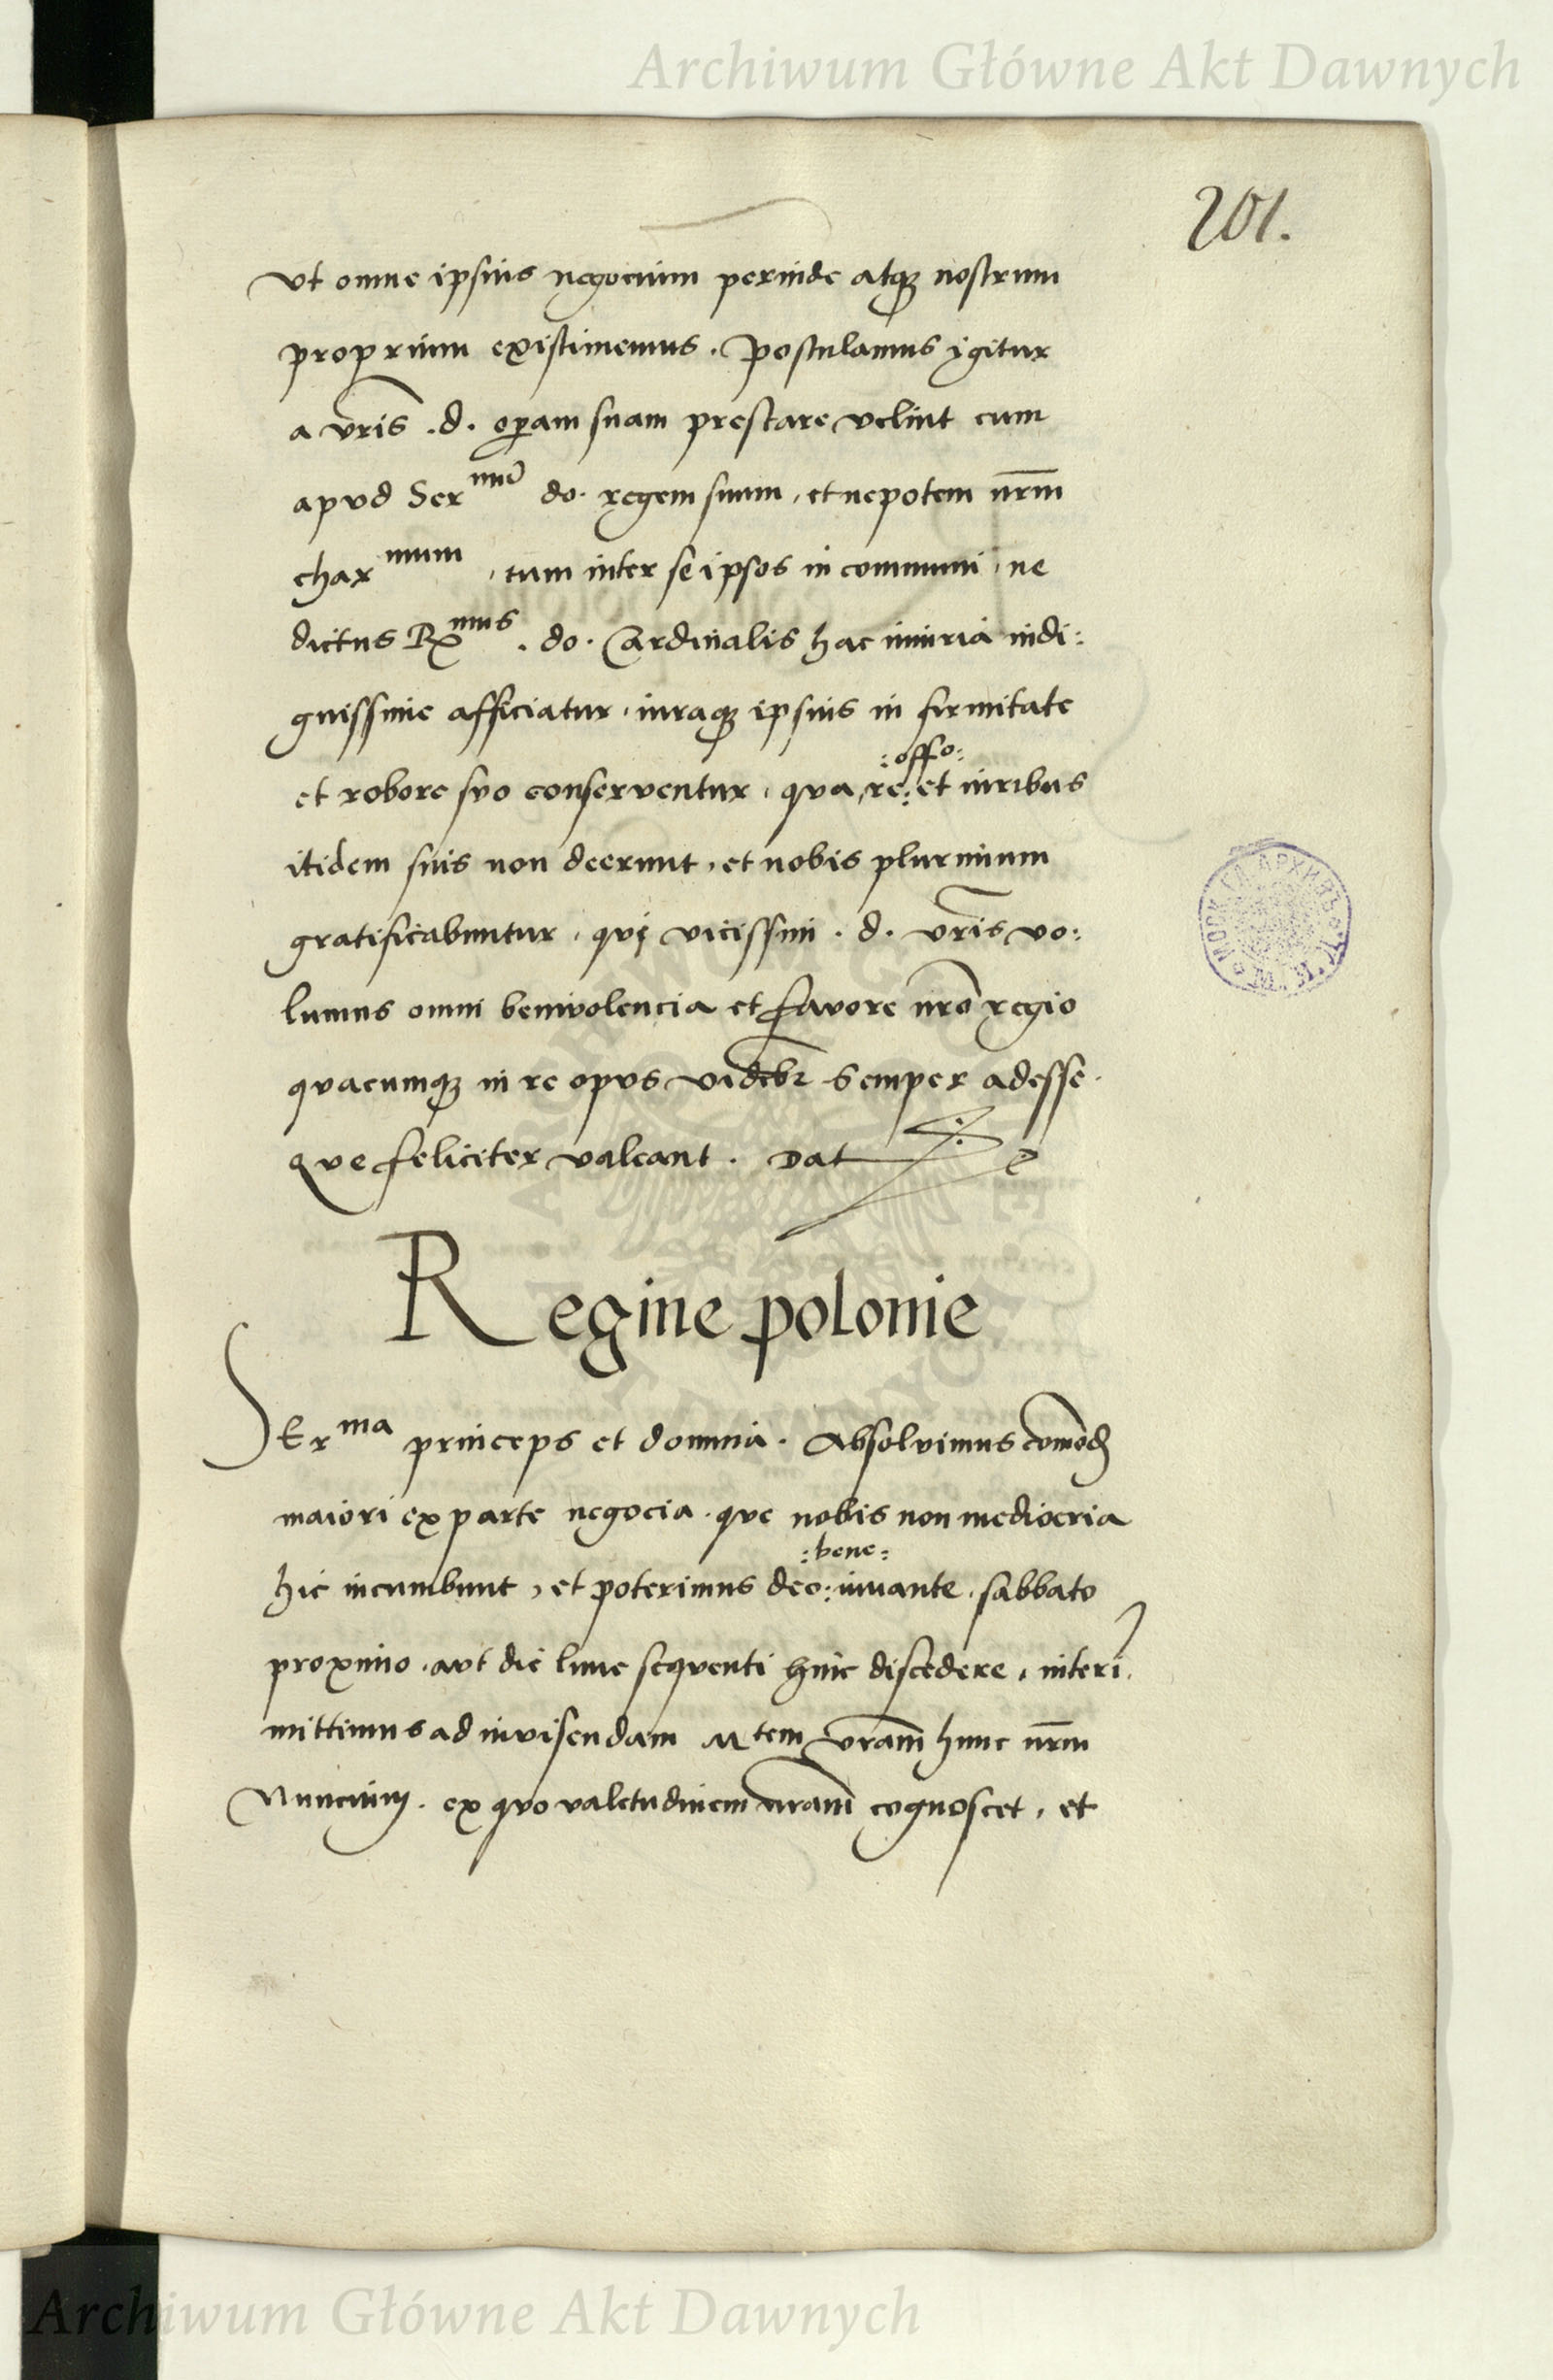 Archiwum Główne Akt Dawnych
201.
vt omne ipsius negocium perinde atqꝫ nostrum
proprium existimemus. Postulamus igitur
a vr̃is .d. op̃am suam prestare velint cum
apud Ser^mũ do. regem suum, et nepotem nr̃m
char^mum, tum inter se ipsos in communi, ne
dictus R^mus. do. Cardinalis hac iniuria indi:
gnissime afficiatur, iuraqꝫ ipsius in firmitate
:offo:
et robore suo conserventur, qua re: et iuribus
itidem suis non deerunt, et nobis plurimum
gratificabuntur, qui vicissim . d. vr̃is vo:
lumus omni benivolencia et favore nr̃o regio
quacumqꝫ in re opus videbr̃ semper adesse.
que feliciter valeant. Dat
Regine polonie
SEr^ma princeps et domina. Absolvimus
maiori ex parte negocia. que nobis non mediocria
:bene:
hic incumbunt, et poterimus deo: iuvante. sabbato
proximo. aut die lune sequenti hinc discedere, interĩ.
mittimus ad invisendam M^tem vr̃am hunc nr̃m
Nuncium. ex quo valetudinem nr̃am cognoscet, et
Archiwum Główne Akt Dawnych